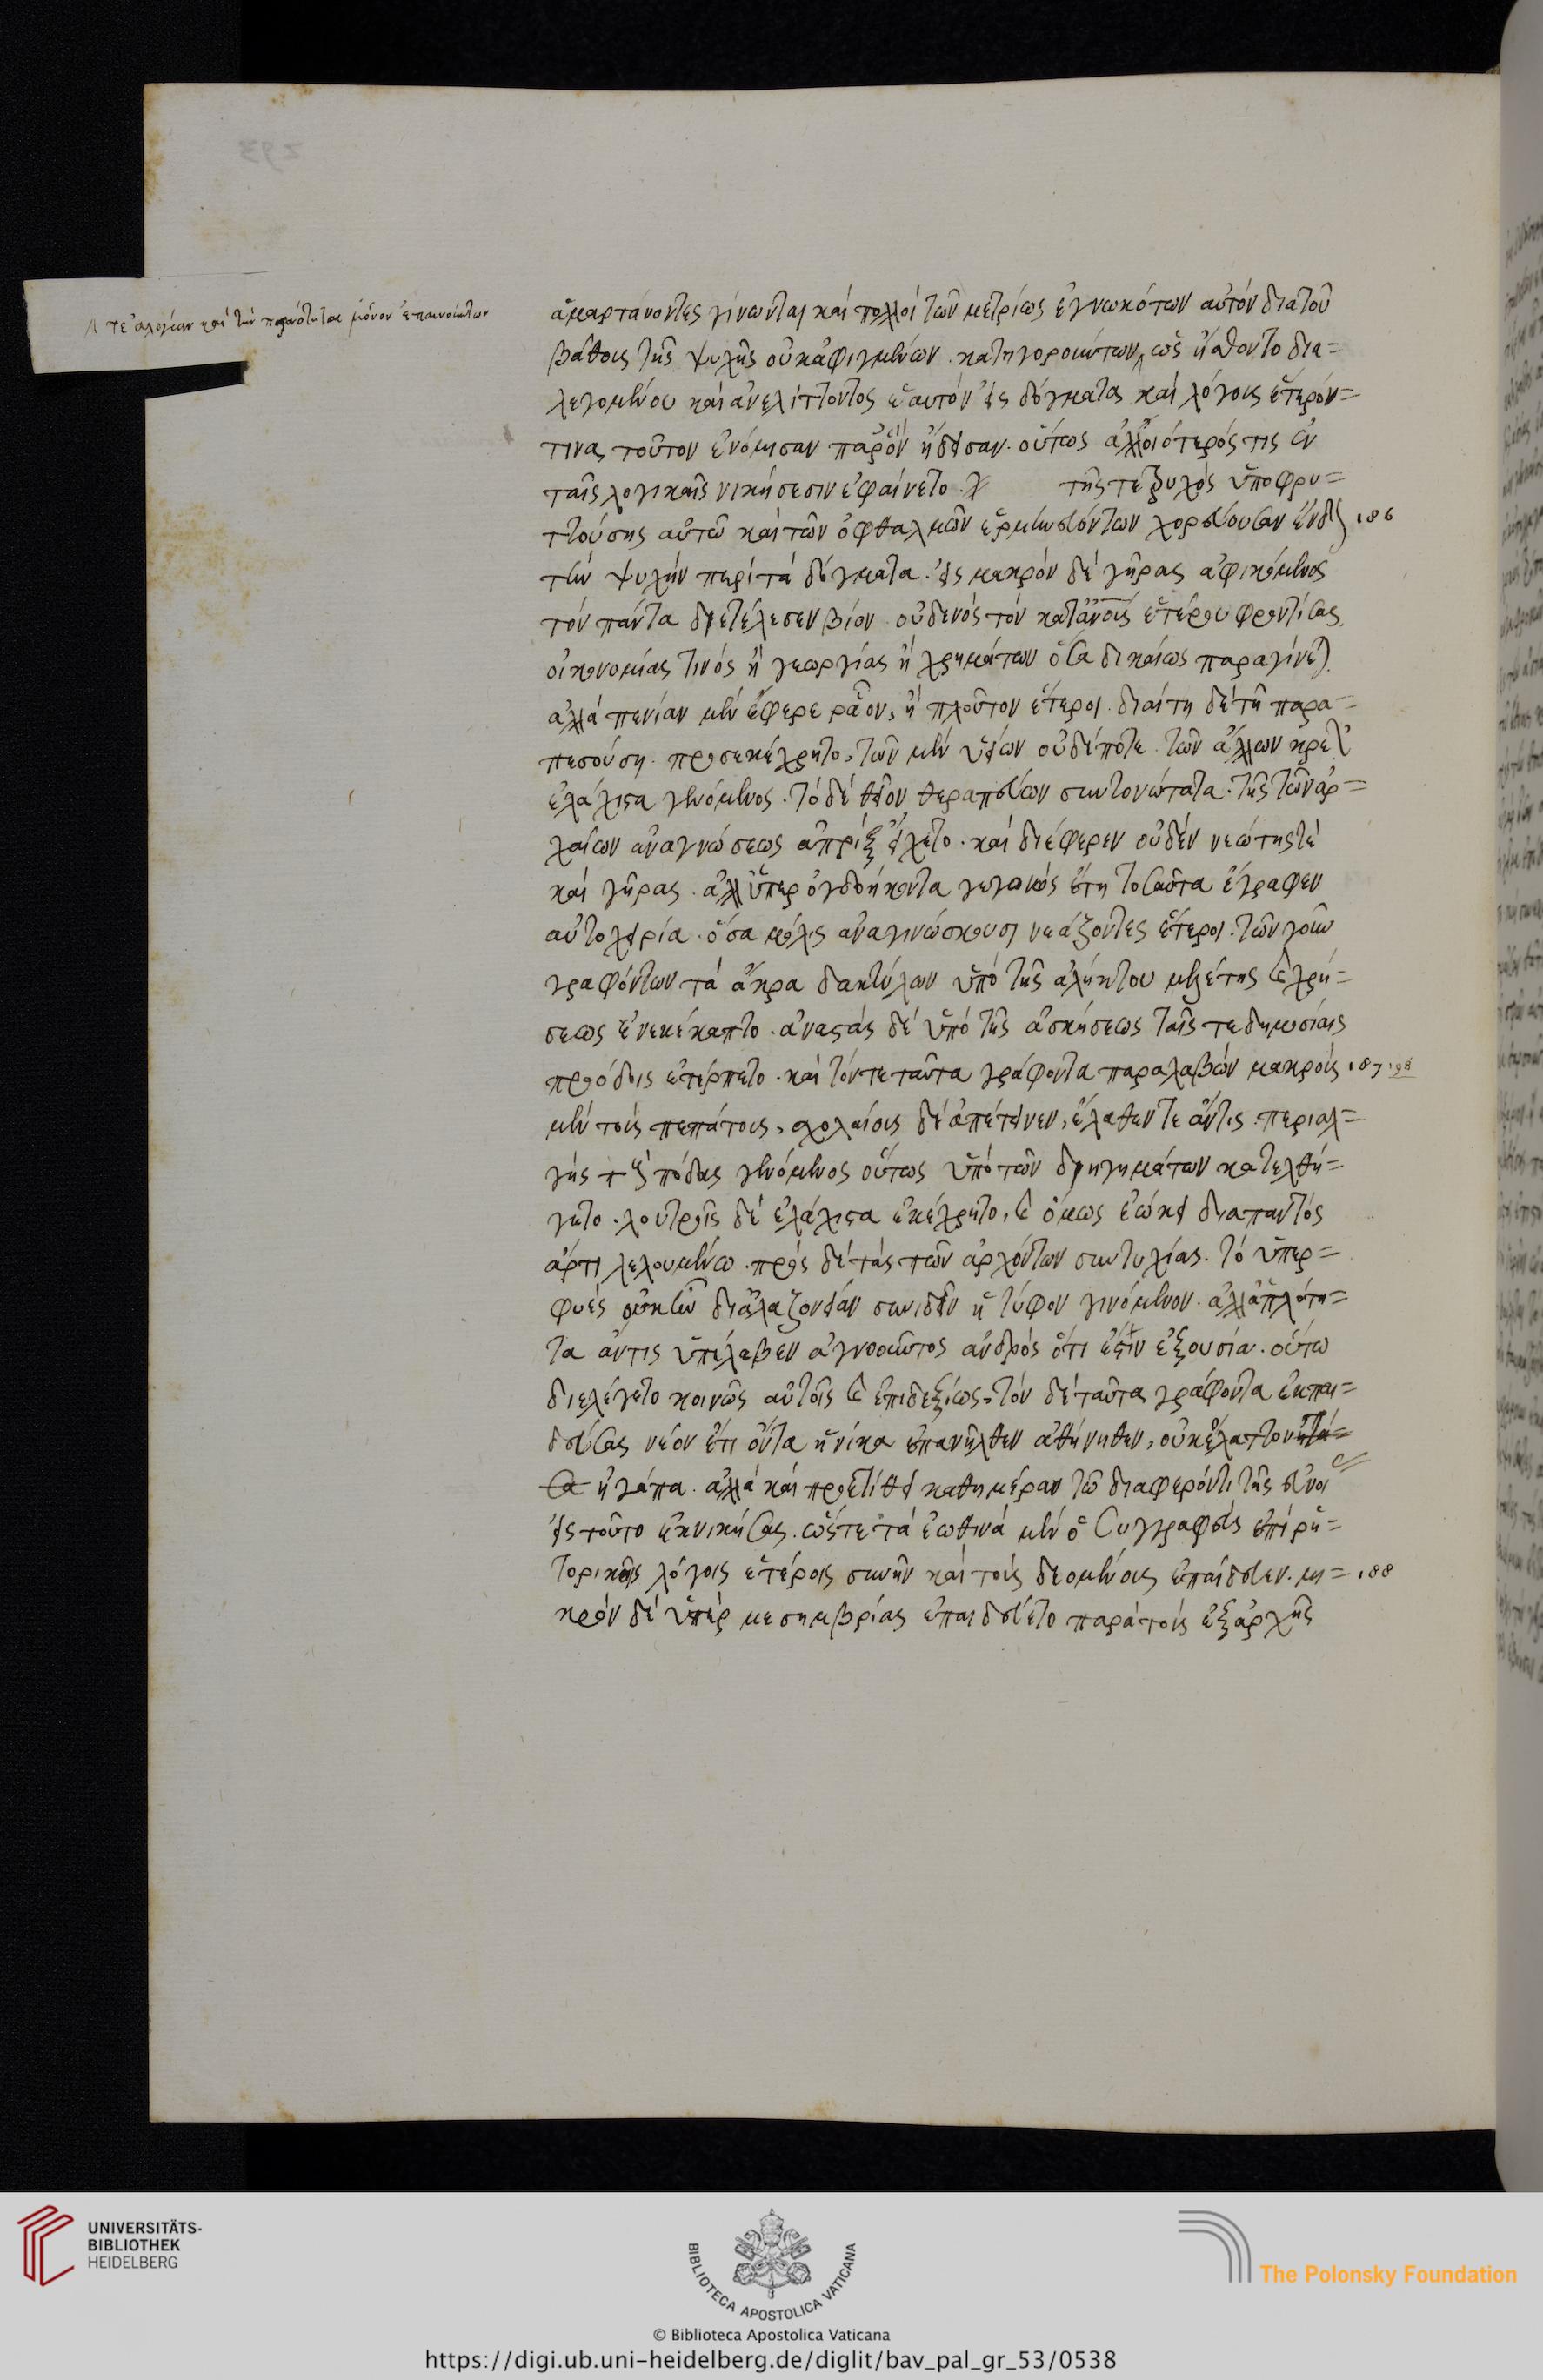 ἁμαρτάνοντες γίνωνται καὶ πολλοὶ τῶν μετρίως ἐγνωκότων αὐτὸν διὰ τοῦ
τε ἀλογίαν καὶ τὴν μόνον ἐπαινούντων
βάθους τῆς ψυχῆς οὐκ ἀφιγμένων κατηγορούντων, ὡς ᾔσθοντο δια=
λεγομένου καὶ ἀνελίττοντος ἑαυτὸν εἰς δόγματα καὶ λόγους ἕτερόν=
τινα τοῦτον ἐνόμισαν παρ' ὃν ᾔδεισαν. οὕτως ἀλλοιότερός τις ἐν
ταῖς λογικαῖς νικήσεσιν ἐφαίνετο. τῆς τε ὀφρύος ὑποφρυ=
ττούσης αὐτῷ καὶ τῶν ὀφθαλμῶν ἑρμηνευόντων χορεύουσαν ἔνδον 186
τὴν ψυχὴν περὶ τὰ δόγματα. εἰς μακρὸν δὲ γῆρας ἀφικόμενος
τὸν πάντα διετέλεσεν βίον οὐδενὸς τὸν κατ' ἀνθρώπους ἑτέρου φροντίσας
οἰκονομίας τινὸς ἢ γεωργίας ἢ χρημάτων ὅσα δικαίως παραγίνεται.
ἀλλὰ πενίαν μὲν ἔφερε ῥᾷον, ἢ πλοῦτον ἕτεροι. διαίτῃ δὲ τῇ παρα=
πεσούσῃ προσεκέχρητο, τῶν μὲν ὑείων οὐδέποτε τῶν ἄλλων κρεῶν
ἐλάχιστα γευόμενος. τὸ δὲ θεῖον θεραπεύων συντονώτατα. τῆς τῶν ἀρ=
χαίων ἀναγνώσεως ἀπρὶξ εἴχετο. καὶ διέφερεν οὐδὲν νεώτης τε
καὶ γῆρας. ἀλλ' ὑπερ ὀγδοήκοντα γεγονὼς ἔτη τοσαῦτα ἔγραφεν
αὐτοχειρία. ὅσα μόλις ἀναγινώσκουσι νεάζοντες ἕτεροι. τῶν γοῦν
γραφόντων τὰ ἄκρα δακτύλων ὑπὸ τῆς ἀλήκτου μελέτης καὶ χρή=
σεως ἐνεκέκαπτο. ἀναστὰς δὲ ὑπὸ τῆς ἀσκήσεως ταῖς τε δημοσίαις
προόδοις ἐτέρπετο. καὶ τόν τε ταῦτα γράφοντα παραλαβὼν μακροὺς 187 198
μὲν τοὺς πεπάτους, σχολαίους δὲ ἀπέτεινεν, ἔλαθεν τε ἄν τις. περιαλ=
γὴς τοὺς πόδας γενόμενος οὕτως ὑπὸ τῶν διηγημάτων κατελθή=
γητο. λουτροῖς δὲ ἐλάχιστα ἐκέχρητο, καὶ ὅμως ἐῴκει διαπαντὸς
ἄρτι λελουμένῳ. πρὸς δὲ τὰς τῶν ἀρχόντων συντυχίας. τὸ ὑπερ=
φυὲς οὐκ ἦν δι' ἀλαζονείαν συνιδεῖν ἢ τύφον γινόμενον. ἀλλ' ἁπλότη=
τα ἄν τις ὑπέλαβεν ἀγνοοῦντος ἀνδρὸς ὅτι ἐστὶν ἐξουσία. οὕτω
διελέγετο κοινῶς αὐτοῖς καὶ ἐπιδεξίως, τὸν δὲ ταῦτα γράφοντα ἐκπαι=
δεύσας νέον ἔτι ὄντα ἡνίκα ἐπανῆλθεν ἀθήνηθεν, οὐκ ἔλαττον
ἠγάπα. ἀλλὰ καὶ προετίθει καθημέραν τῷ διαφέροντι τῆς εὐνοί=
εἰς τοῦτο ἐκνικήσας. ὥστε τὰ ἑωθινὰ μὲν ὁ συγγραφεὺς ἐπὶ ῥη=
τορικοῖς λόγοις ἑτέροις συνῆν καὶ τοὺς δεομένους ἐπαίδευεν. μι= 188
κρὸν δὲ ὑπὲρ μεσημβρίας ἐπαιδεύετο παρὰ τοὺς ἐξ ἀρχῆς
UNIVERSITÄTS-
BIBLIOTHEK
HEIDELBERG
BIBLIOTECA APOSTOLICA VATICANA
The Polonsky Foundation
© Biblioteca Apostolica Vaticana
https://digi.ub.uni-heidelberg.de/diglit/bav_pal_gr_53/0538